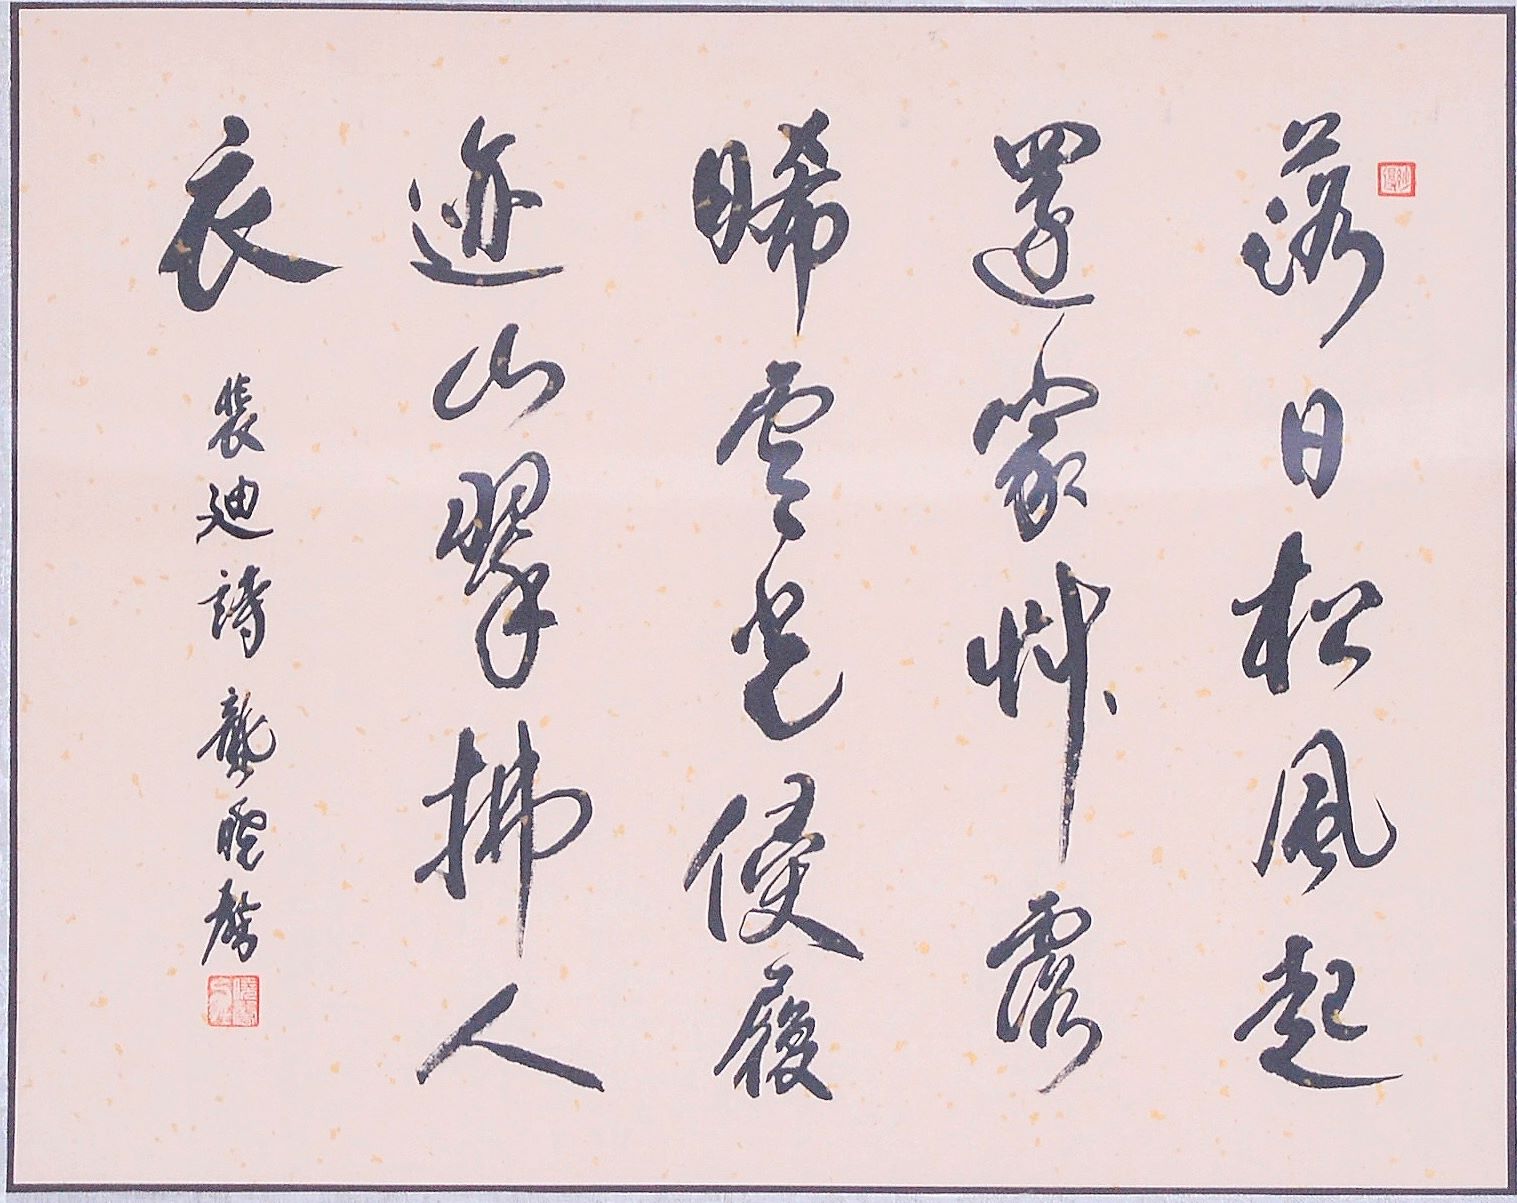 落日松風起
還家艸露
晞雲光侵履
迹山翠拂人
衣 裴迪詩 龔